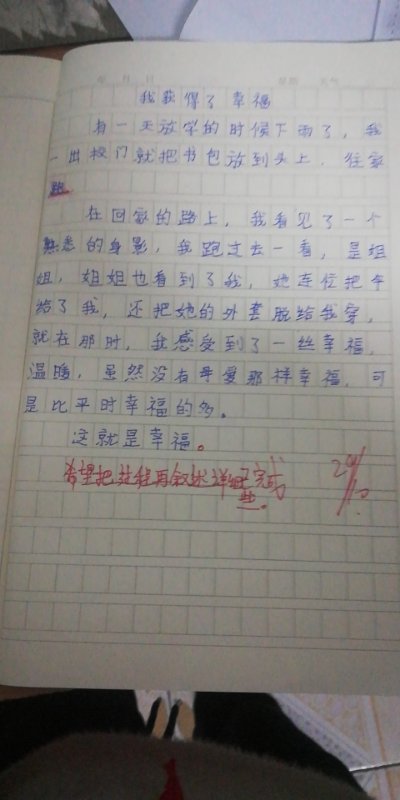 年 月 日 星期 天气
我获得了幸福
有一天放学的时候下雨了，我
一出校门就把书包放到头上，往家
跑
在回家的路上，我看见了一个
熟悉的身影，我跑过去一看，是姐
姐，姐姐也看到了我，她连位把伞
给了我，还把她的外套脱给我穿，
就在那时，我感受到了一丝幸福，
温暖，虽然没有母爱那样幸福，可
是比平时幸福的多。
这就是幸福。
希望把过程再叙述详细些。